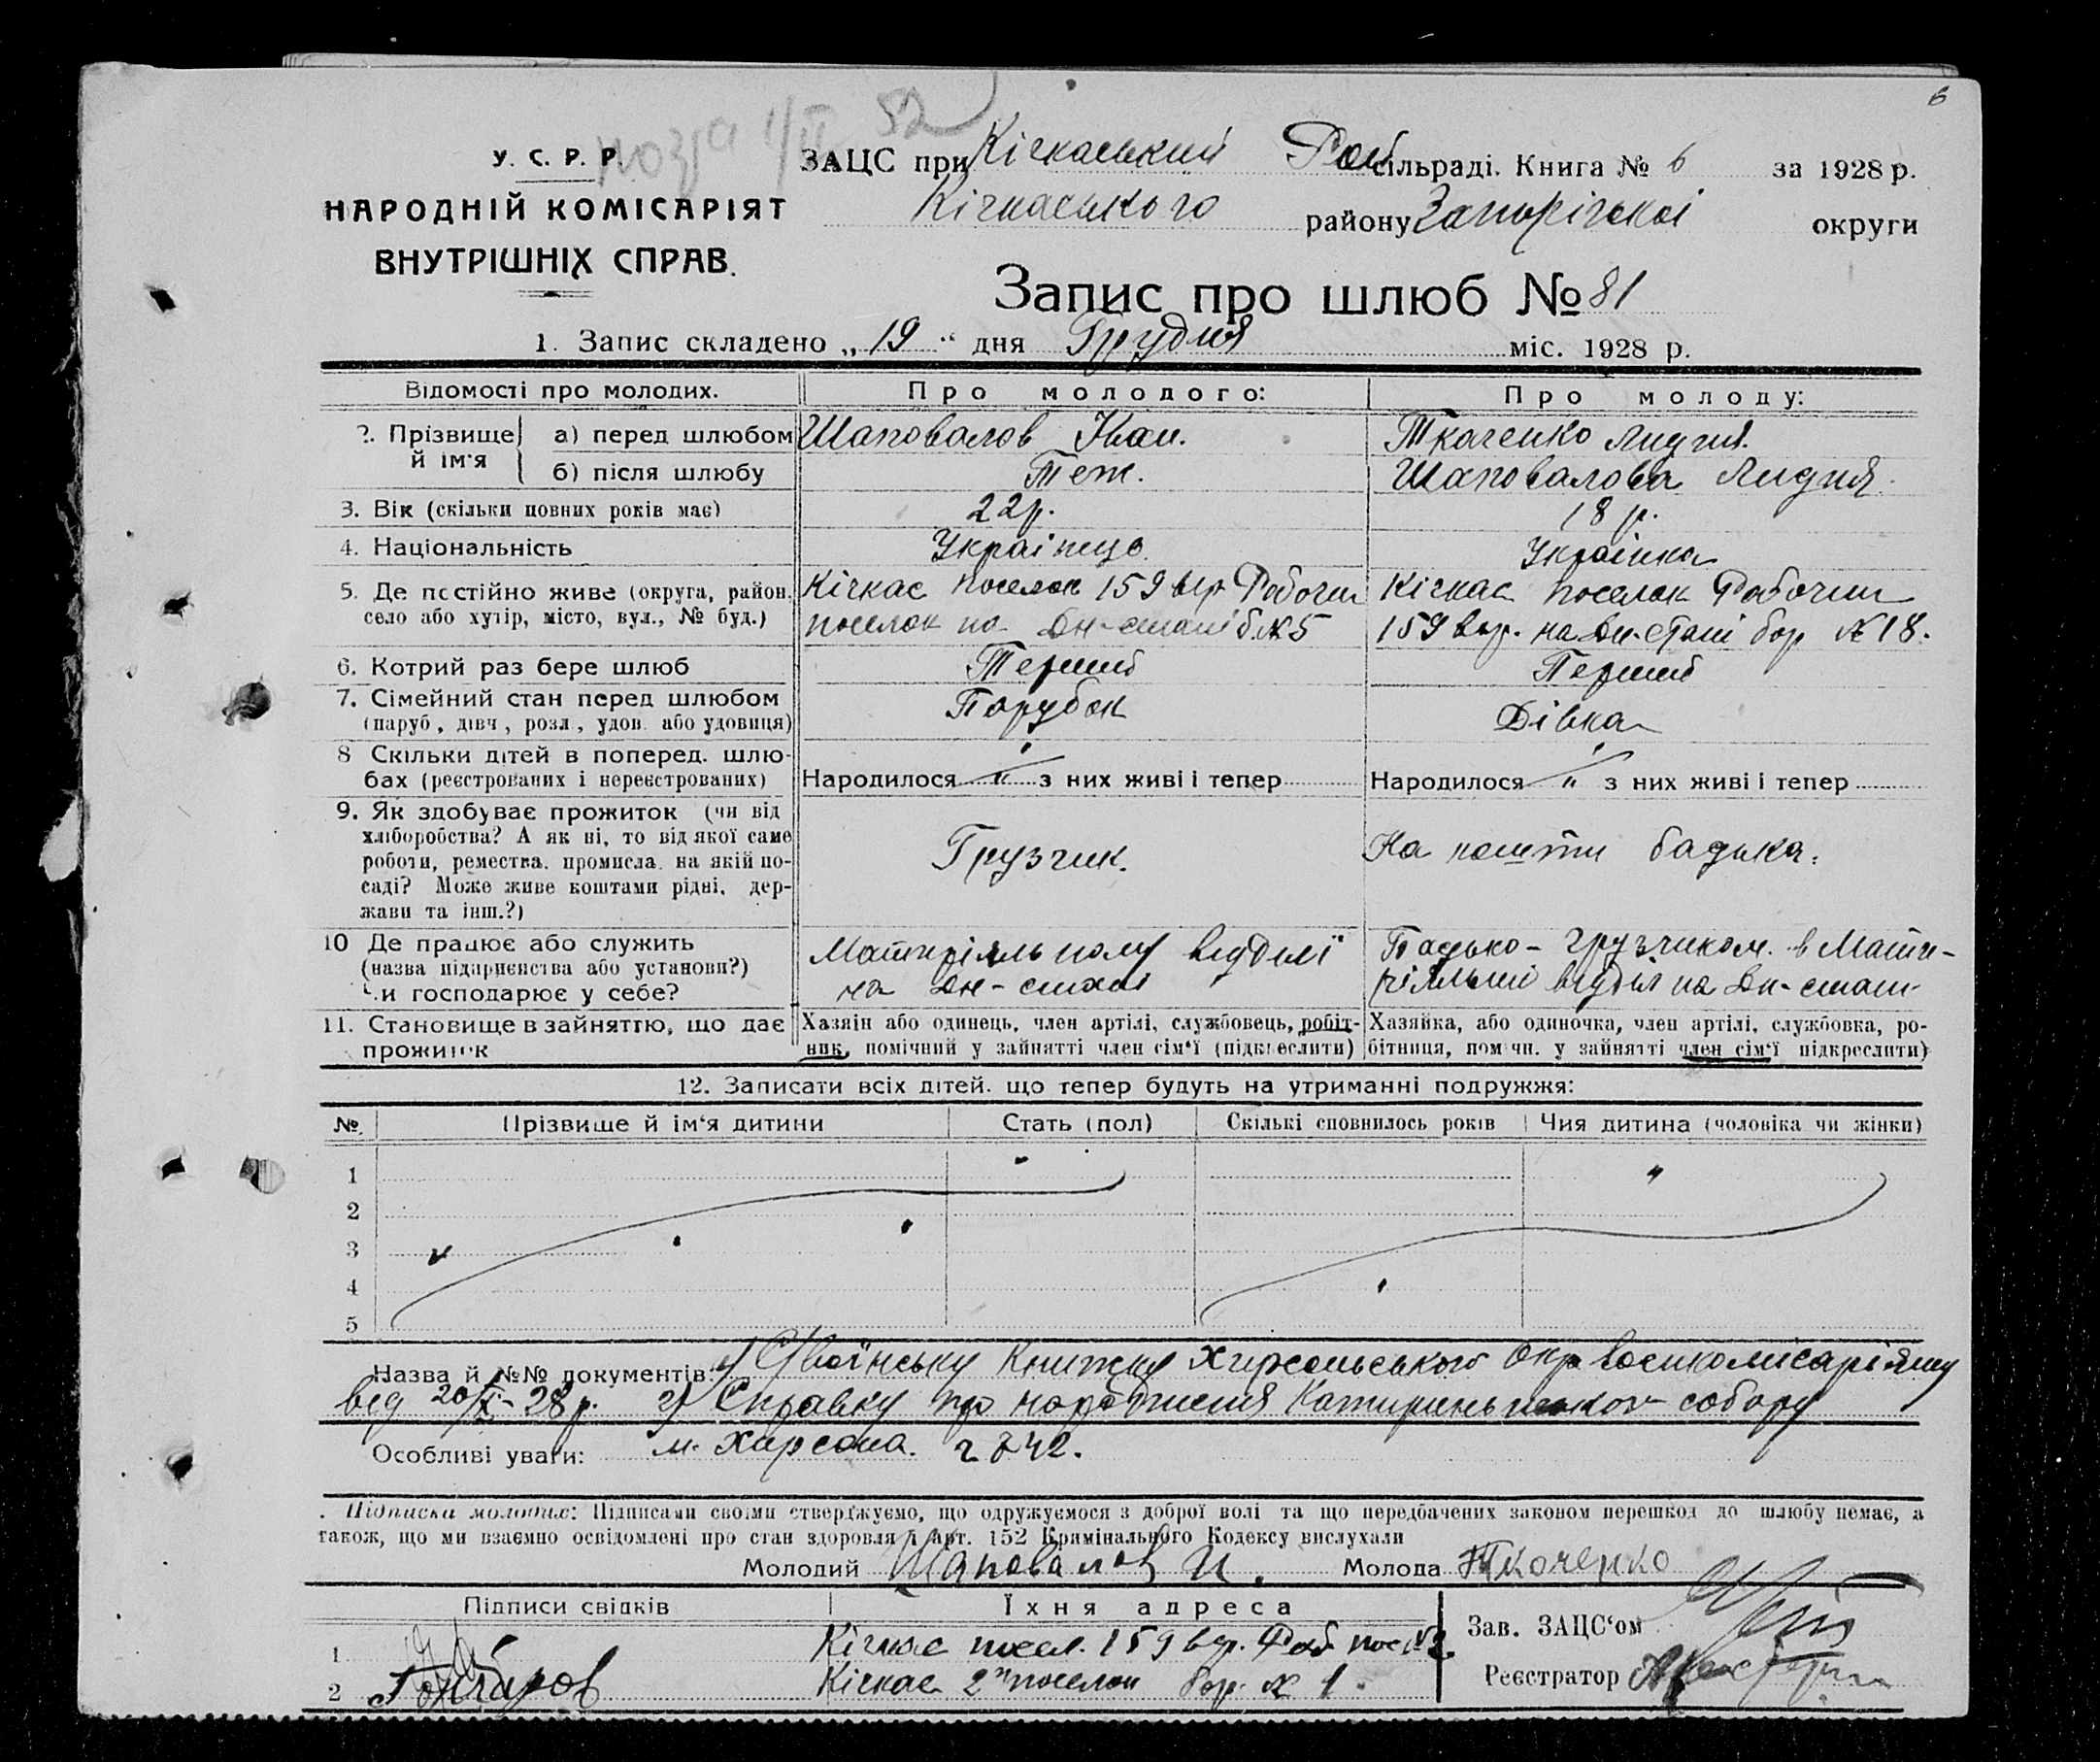 6
У. С. Р. Р.
НАРОДНІЙ КОМІСАРІЯТ
ВНУТРІШНІХ СПРАВ.
ЗАЦС при Кічкаський Рай сільраді. Книга № 6 за 1928 р.
Кічкаського району Запорізької округи
Запис про шлюб № 81
1. Запис складено „19“ дня Грудня міс. 1928 р.
Відомості про молодих. Про молодого: Про молоду:
2. Прізвище й ім'я а) перед шлюбом Шаповалов Іван. Ткаченко Лидия.
б) після шлюбу Теж. Шаповалова Лидия.
3. Вік (скільки повних років має) 22 р. 18 р.
4. Національність Українець. Українка
5. Де постійно живе (округа, район, Кічкас поселок 159 вер Робочий Кічкас поселок Робочий
село або хутір, місто, вул., № буд.) поселок на Дн-стані б. № 5 159 вер. на Дн-стані бор № 18.
6. Котрий раз бере шлюб Перший Перший
7. Сімейний стан перед шлюбом Парубок Дівка
(паруб., дівч., розл., удов. або удовиця)
8 Скільки дітей в поперед. шлю-
бах (реєстрованих і нереєстрованих) Народилося „ з них живі і тепер Народилося „ з них живі і тепер
9. Як здобуває прожиток (чи від
хліборобства? А як ні, то від якої саме
роботи, ремества, промисла, на якій по- Грузчик. На кошти бадька.
саді? Може живе коштами рідні, дер-
жави та інш.?)
10 Де працює або служить Матиріяльному відділі Бадько - грузчиком в Мати-
(назва підприєнства або установи?) на Дн-стані ріяльний відділ на Дн-стані
Чи господарює у себе?
11. Становище в зайняттю, що дає Хазяін або одинець, член артілі, службовець, робіт- Хазяйка, або одиночка, член артілі, службовка, ро-
прожиток ник, помічний у зайнятті член сім'ї (підкреслити) бітниця, помічн. у зайнятті член сім'ї підкреслити)
12. Записати всіх дітей, що тепер будуть на утриманні подружжя:
№ Прізвище й ім'я дитини Стать (пол) Скількі сповнилось років Чия дитина (чоловіка чи жінки)
1
2
3
4
5
Назва й №№ документів: Воїнську Книжку Херсонського Окр воєнкомісаріяту
від 20/X-28 р. 2) Справку про народження Катириньського собору
Особливі уваги: м. Херсона. 242.
Підписка молодих: Підписами своіми стверджуємо, що одружуємося з доброї волі та що передбачених законом перешкод до шлюбу немає, а
також, що ми взаємно освідомлені про стан здоровля і арт. 152 Крамінального Кодексу вислухали
Молодий Шаповалов И. Молода Ткоченко
Підписи свідків Їхня адреса Зав. ЗАЦС'ом
1 Кічкас посел. 159 вер. Раб пос № 2
2 Гончаров Кічкас 2й поселок бор. № 1. Реєстратор